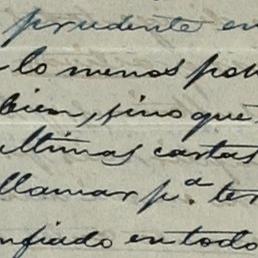 prudente en
lo menos por
bien, sino que
ultimas cartas
llamar p.ª ter
nfiado en todo